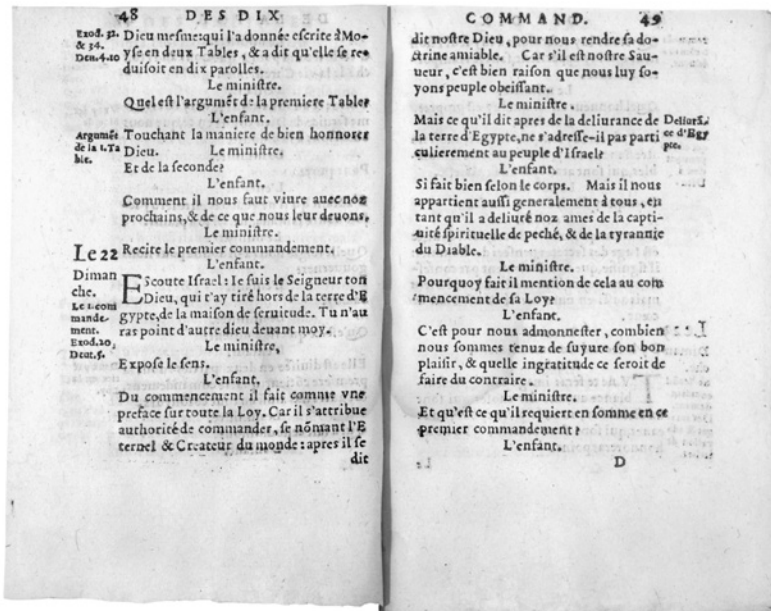 48 DES DIX
Exod. 32.
& 34.
Deu. 4.10
Dieu mesme: qui l'a donnée escrite à Mo-
yse en deux Tables, & a dit qu'elle se re-
duisoit en dix parolles.
Le ministre.
Quel est l'argumét d: la premiere Table?
L'enfant.
Argumét
de la 1. Ta
ble.
Touchant la maniere de bien honnorer
Dieu. Le ministre.
Et de la seconde?
L'enfant.
Comment il nous faut viure auec noz
prochains, & de ce que nous leur deuons.
Le ministre.
Le 22
Diman
che.
Le 1. com
mande-
ment.
Exod. 20,
Deut. 5.
Recite le premier commandement.
L'enfant.
EScoute Israel: Ie suis le Seigneur ton
Dieu, qui t'ay tiré hors de la terre d'E
gypte, de la maison de seruitude. Tu n'au
ras point d'autre dieu deuant moy.
Le ministre,
Expose le sens.
L'enfant.
Du commencement il fait comme vne
preface sur toute la Loy. Car il s'attribue
authorité de commander, se nõmant l'E
ternel & Createur du monde: apres il se
dit
COMMAND. 49
dit nostre Dieu, pour nous rendre sa do-
ctrine amiable. Car s'il est nostre Sau-
ueur, c'est bien raison que nous luy so-
yons peuple obeissant.
Le ministre.
Mais ce qu'il dit apres de la deliurance de
la terre d'Egypte, ne s'adresse-il pas parti
culierement au peuple d'Israel?
L'enfant.
Si fait bien selon le corps. Mais il nous
appartient aussi generalement à tous, en
tant qu'il a deliuré noz ames de la capti-
uité spirituelle de peché, & de la tyrannie
du Diable.
Le ministre.
Pourquoy fait il mention de cela au com
mencement de sa Loy?
L'enfant.
C'est pour nous admonnester, combien
nous sommes tenuz de suyure son bon
plaisir, & quelle ingratitude ce seroit de
faire du contraire.
Le ministre.
Et qu'est ce qu'il requiert en somme en ce
premier commandement?
L'enfant.
D